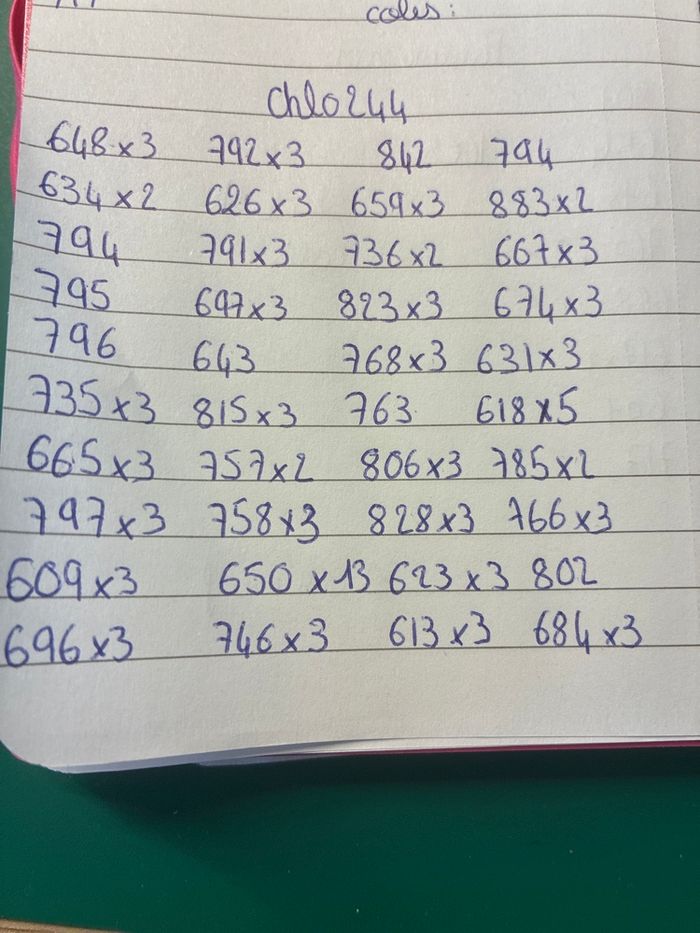 coles:
Chlo244
648 x 3 792 x 3 842 794
634 x 2 626 x 3 659 x 3 883 x 2
794 791 x 3 736 x 2 667 x 3
795 697 x 3 823 x 3 674 x 3
796 643 768 x 3 631 x 3
735 x 3 815 x 3 763 618 x 5
665 x 3 757 x 2 806 x 3 785 x 2
797 x 3 758 x 3 828 x 3 766 x 3
609 x 3 650 x 13 623 x 3 802
696 x 3 746 x 3 613 x 3 684 x 3